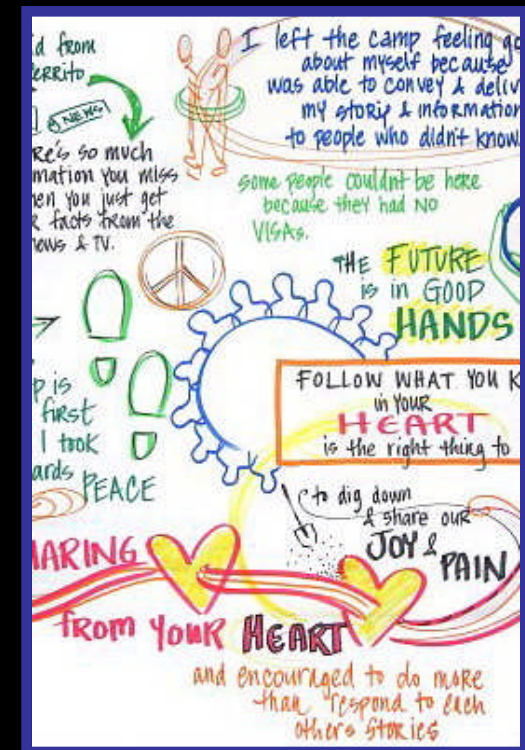 d from
errito
NEWS
re's so much
mation you miss
en you just get
facts from the
news & TV.
I left the camp feeling go
about myself because
was able to convey & deliv
my story & information
to people who didn't know
some people couldn't be here
because they had NO
VISAs.
THE FUTURE
is in GOOD
HANDS
FOLLOW WHAT YOU K
in YOUR
HEART
is the right thing to
p is
first
I took
ards
PEACE
to dig down
& share our
JOY &
PAIN
HARING
from YOUR HEART
and encouraged to do more
than respond to each
others stories